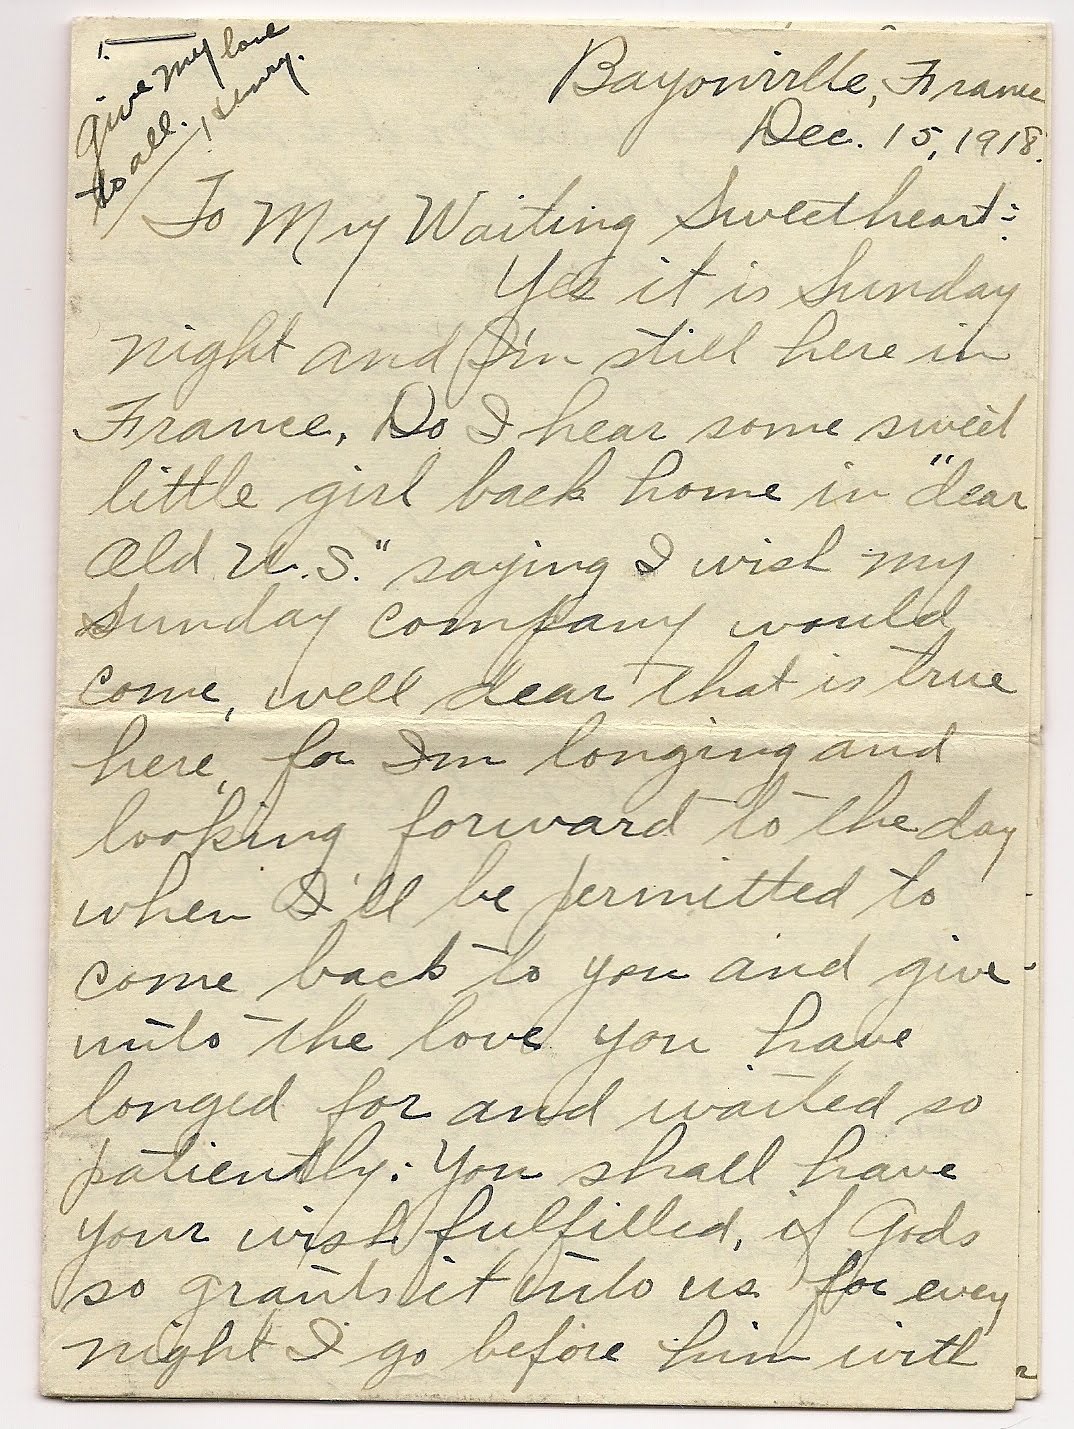 1.
Give my love
to all.
Henry.
Bayonville, France
Dec. 15, 1918.
To My Waiting Sweetheart:
Yes it is Sunday
night and I'm still here in
France. Do I hear some sweet
little girl back home in "dear
Old U.S." saying I wish my
Sunday company would
come, well dear that is true
here, for I'm longing and
looking forward to the day
when I'll be permitted to
come back to you and give
unto the love you have
longed for and waited so
patiently: You shall have
your wish fulfilled, if Gods
so grants it unto us for every
night I go before him with